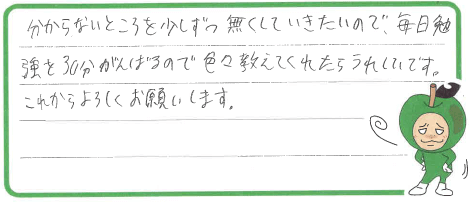 分からないところを少しずつ無くしていきたいので、毎日勉
強を30分がんばるので色々教えてくれたらうれしいです。
これからよろしくお願いします。